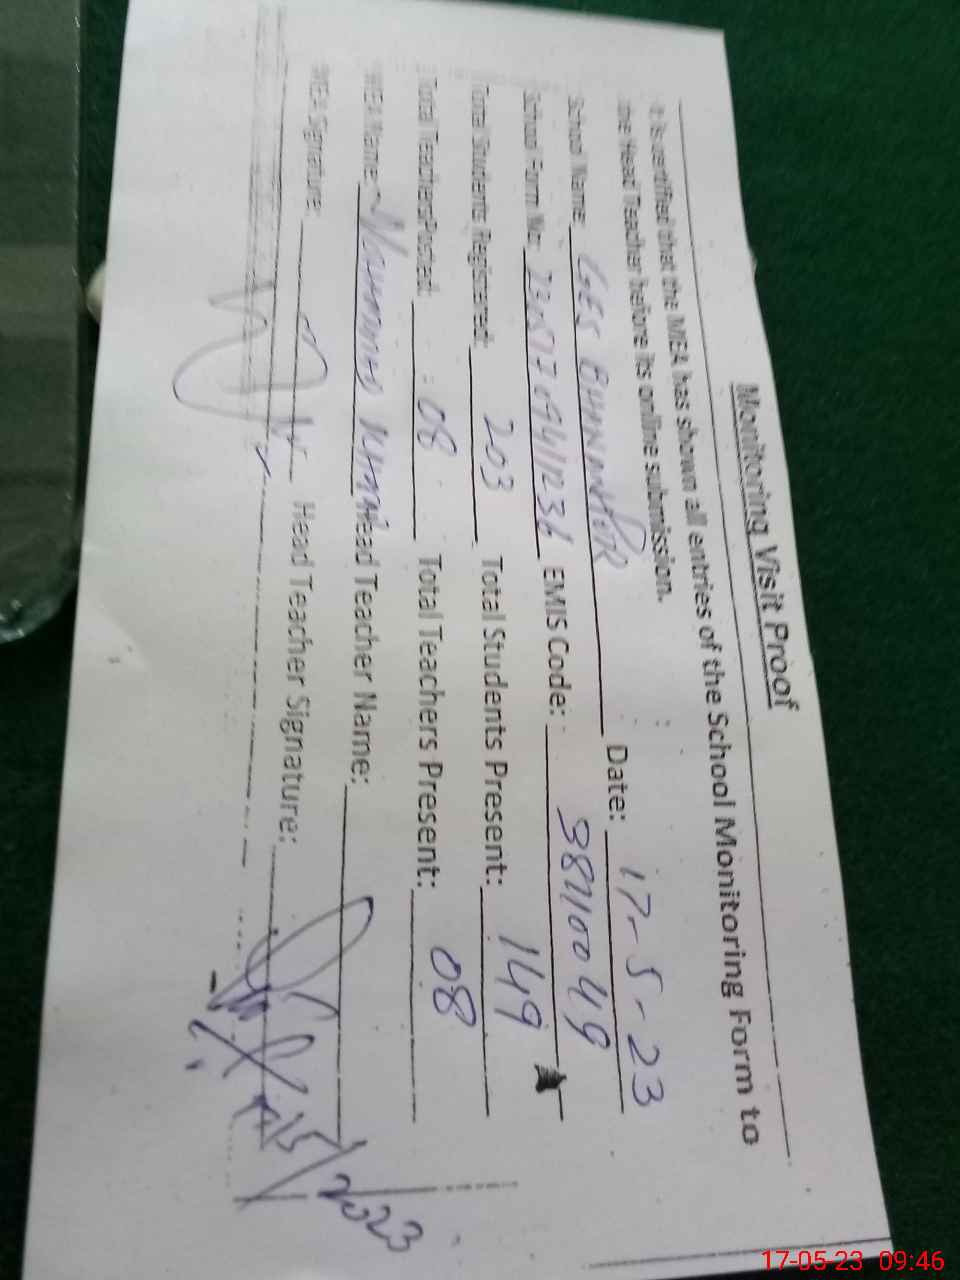 Monitoring Visit Proof
It is certified that the MEA has shown all entries of the School Monitoring Form to
the Head Teacher before its online submission.
School Name: GES Date: 17-5-23
School Form No: EMIS Code: 38110049
Total Students Registered: 203 Total Students Present: 149
Total Teachers Posted: 08 Total Teachers Present: 08
MEA Name: Muhammad Khan Head Teacher Name:
MEA Signature: Head Teacher Signature:
2023
17-05-23 09:46